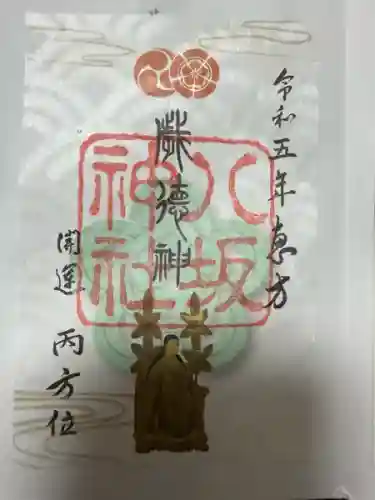 令和五年恵方
歳徳神
八坂
神社
開運
丙方位